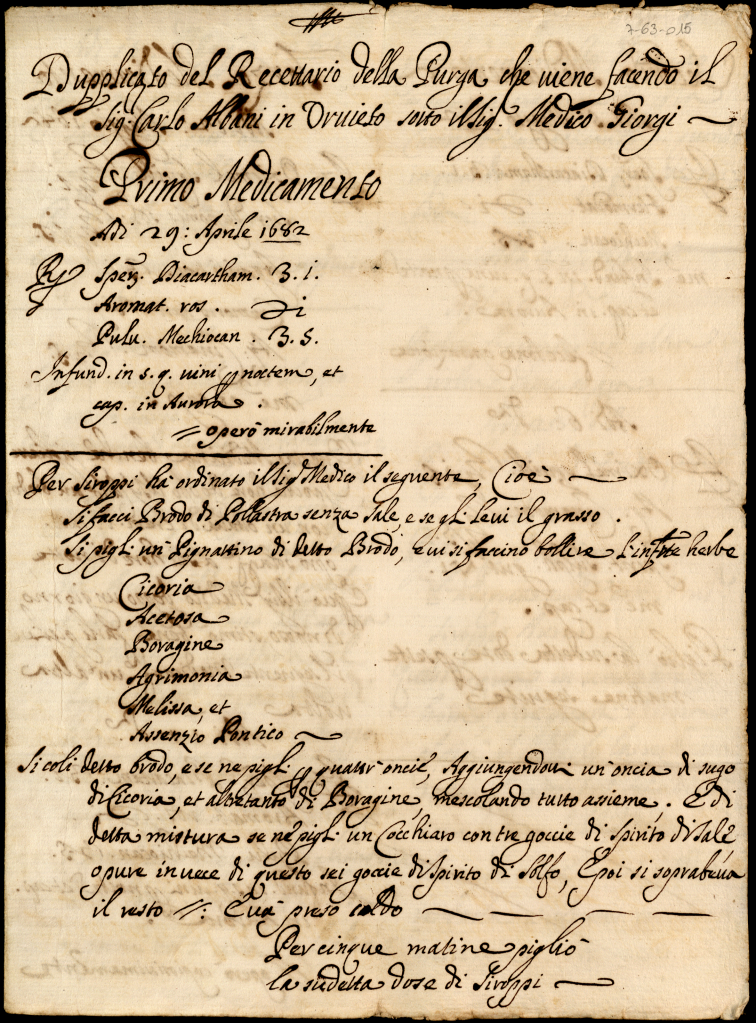 7-63-015
Dupplicato del Recettario della Purga che viene facendo il
Sig: Carlo Albani in Orvieto sotto il Sig: Medico Giorgi
Primo Medicamento
Adi 29: Aprile 1682
Rx Spēz. Diacartham. ʒ. i.
Aromat. ros. ℈ i
Pulv. Mechiocan. ʒ. s.
Infund. in s. q. vini ꝑ noctem, et
cap. in Aurora.
= operò mirabilmente
Per Siroppi hà ordinato il Sig.r Medico il seguente, Cioè
Si facci Brodo di Pollastra senza sale, e se gli levi il grasso.
Si pigli un Pignattino di detto Brodo, e vi si faccino bollire l'inf.tte herbe
Cicoria
Acetosa
Boragine
Agrimonia
Melissa, et
Assenzio Pontico
Si coli detto brodo, e se ne pigli ꝑ quattr'oncie, Aggiungendovi un'oncia di sugo
di Cicoria, et altretanto di Boragine, mescolando tutto assieme. E di
detta mistura se ne pigli un Cocchiaro con tre goccie di Spirito di Sale,
opure in vece di questo sei goccie di Spirito di Solfo, E poi si soprabeva
il resto =: E và preso caldo
Per cinque matine pigliò
la sudetta dose di Siroppi